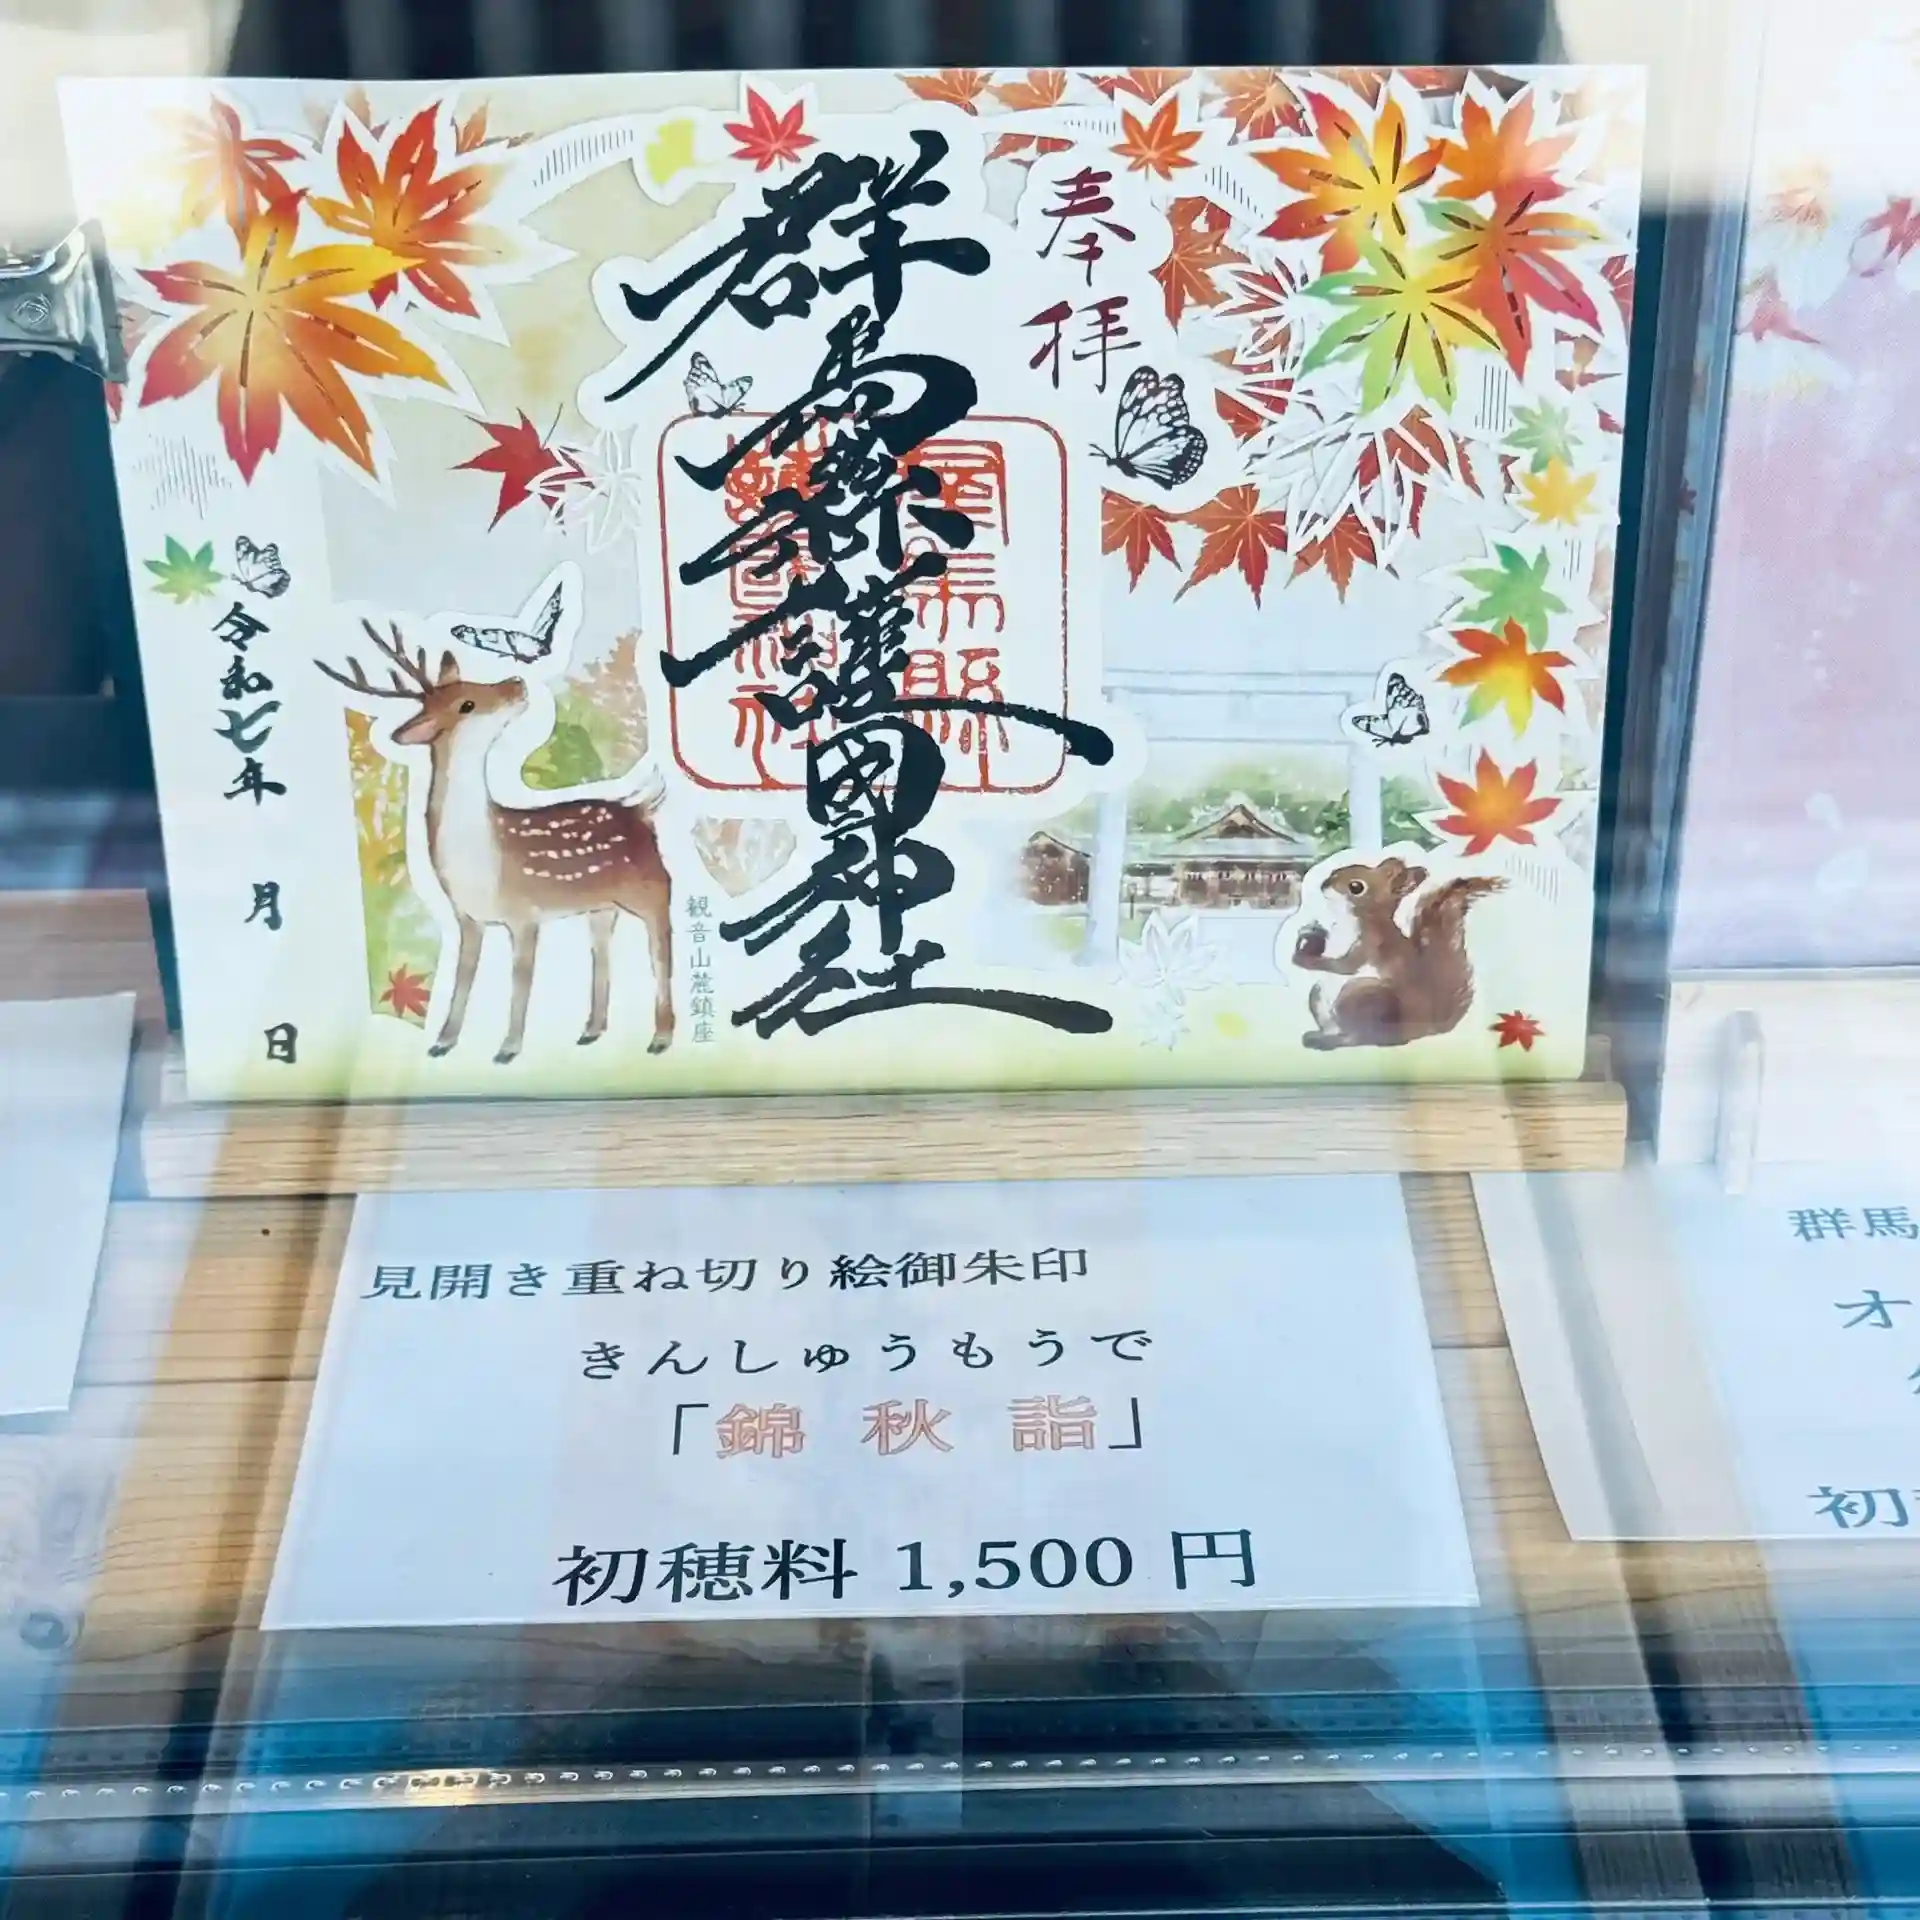 奉拝
群馬縣護國神社
観音山麓鎮座
令和七年 月 日
見開き重ね切り絵御朱印
きんしゅうもうで
「錦 秋 詣」
初穂料 1,500 円
群馬
オ
初